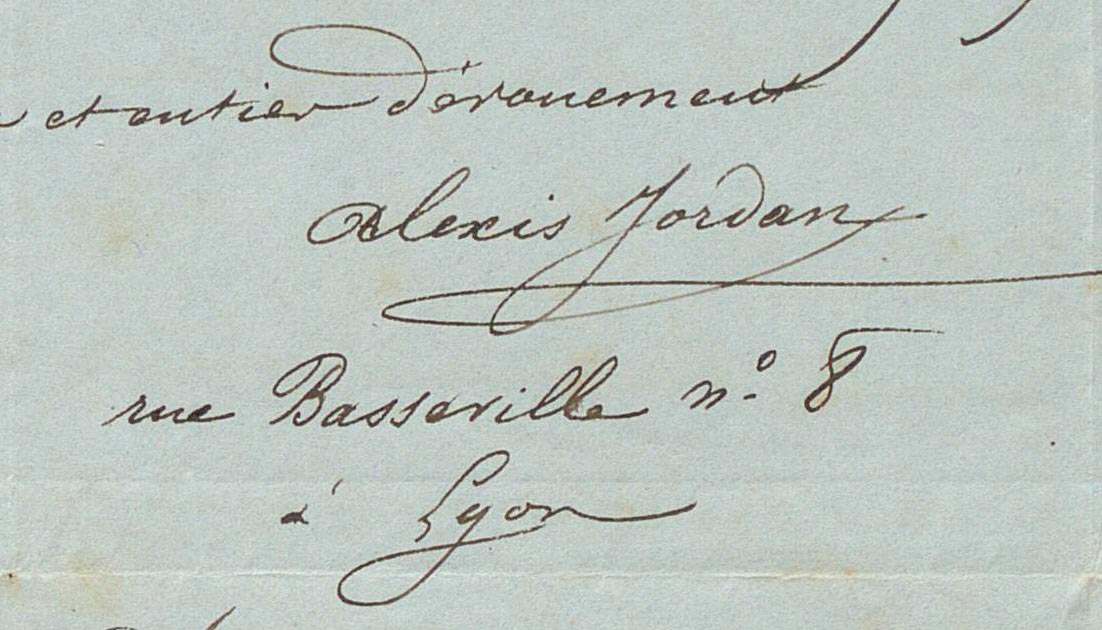 et entier dévouement
Alexis Jordan
rue Basseville n.º 8
à Lyon